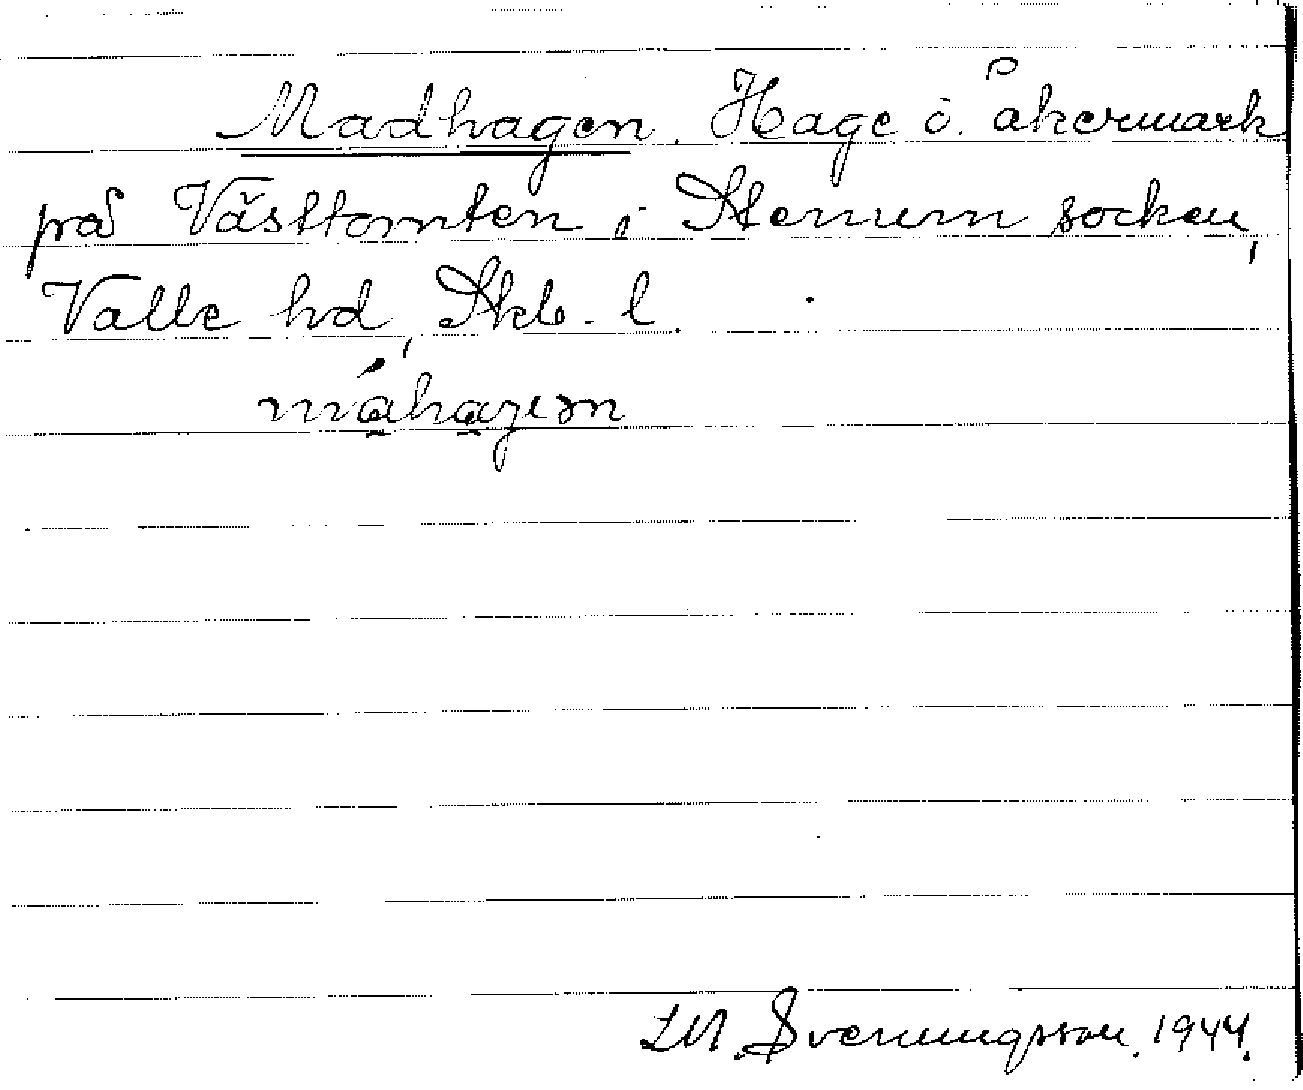 Madhagen. Hage o. åkermark
på Västtomten i Stenum socken,
Valle hd, Skb. l.
máhagen
LM. Svenungsson. 1944.